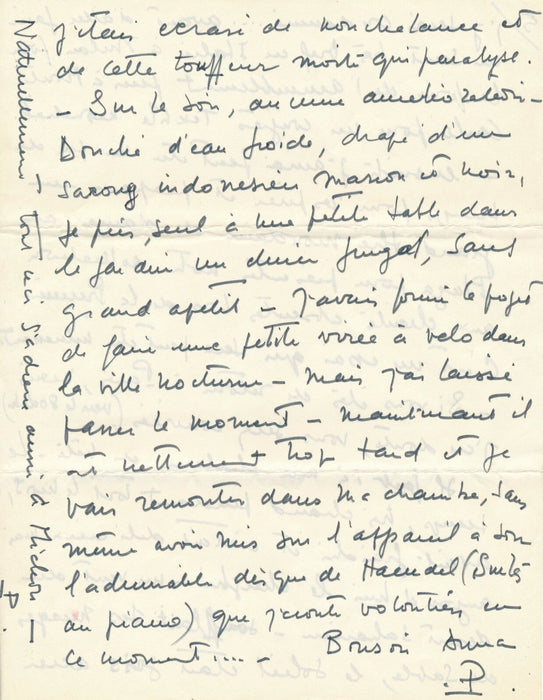 j'étais écrasé de nonchalance et
de cette touffeur moite qui paralyse.
- Sur le soir, aucune amélioration -
Douché d'eau froide, drapé d'un
sarong indonésien marron et noir,
je pris, seul à une petite table dans
le jardin un dîner frugal, sans
grand apétit - j'avais formé le projet
de faire une petite virée à vélo dans
la ville nocturne - mais j'ai laissé
passer le moment - maintenant il
est nettement trop tard et je
vais remonter dans ma chambre, sans
même avoir mis sur l'appareil à son
l'admirable disque de Haendel (Suites
au piano) que j'écoute volontiers en
ce moment.... - Bonsoir Anna
P.
Naturellement, tout ceci s'adresse aussi à Michon -
P.